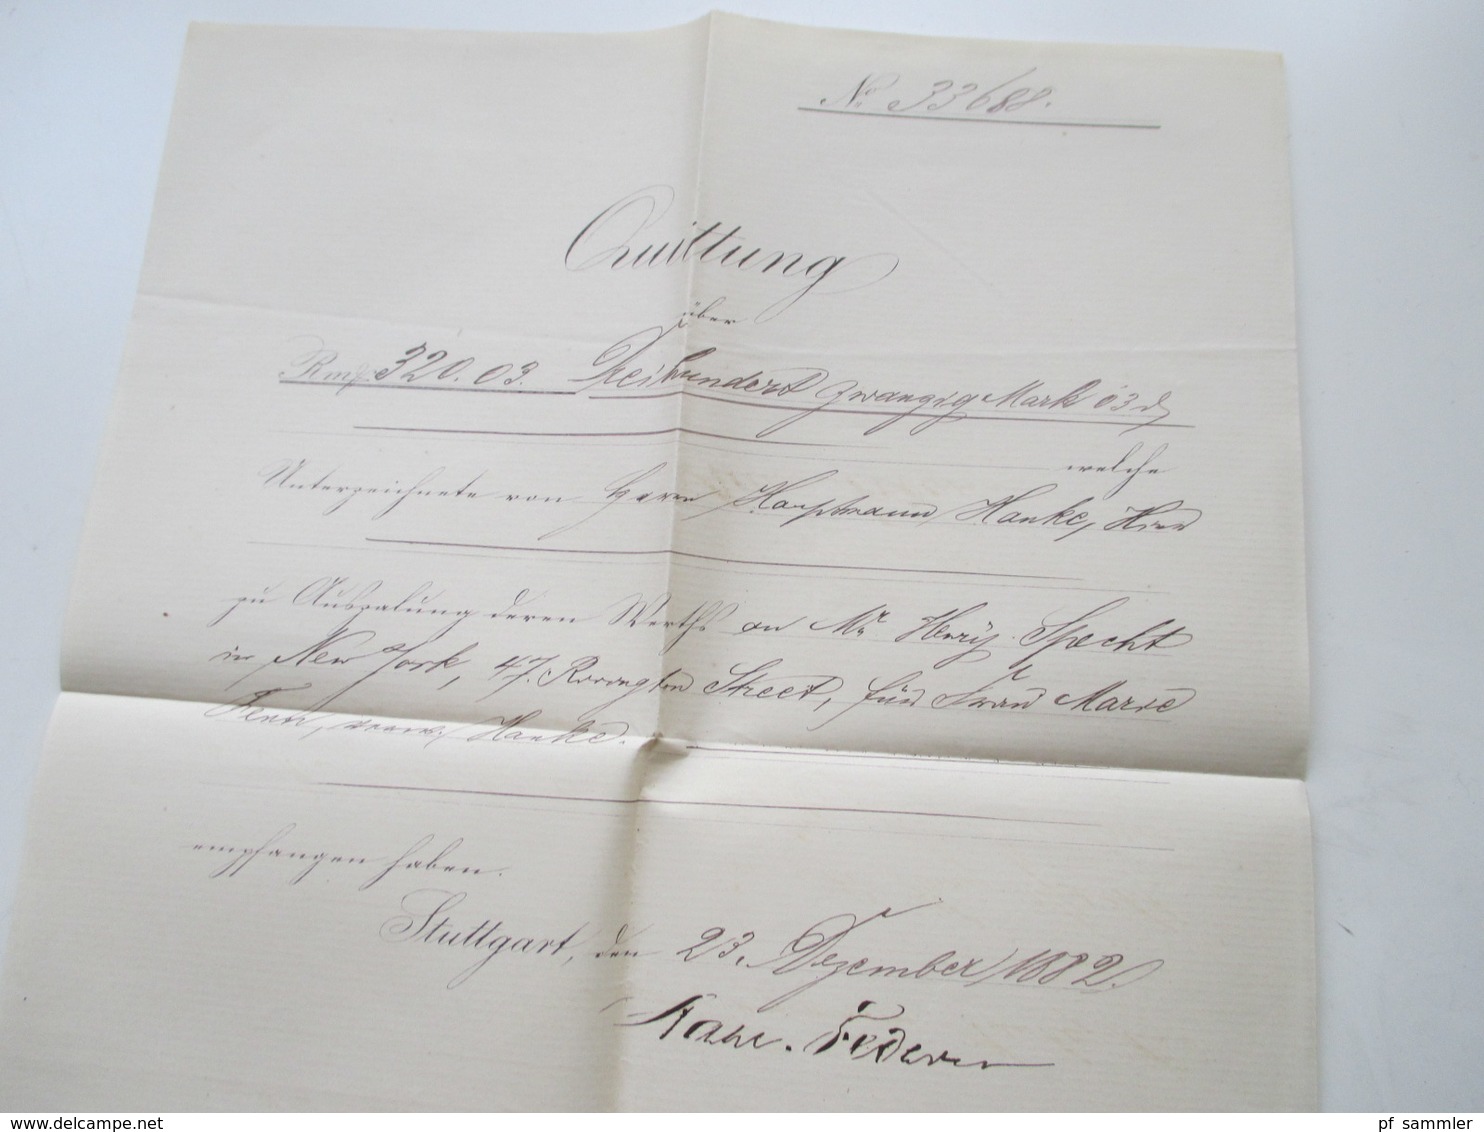 No 33688.
Quittung
über
Rmk 320.03. Dreihundert zwanzig Mark 03 d
welche
Unterzeichnete von Herrn Hauptmann Hanke, Hier
zu Auszalung deren Werths an Mr. Henry Specht
in New York, 47. Street, für Frau Marie
Hanke.
empfangen haben.
Stuttgart, den 23. Dezember 1882.
Federer
pf sammler